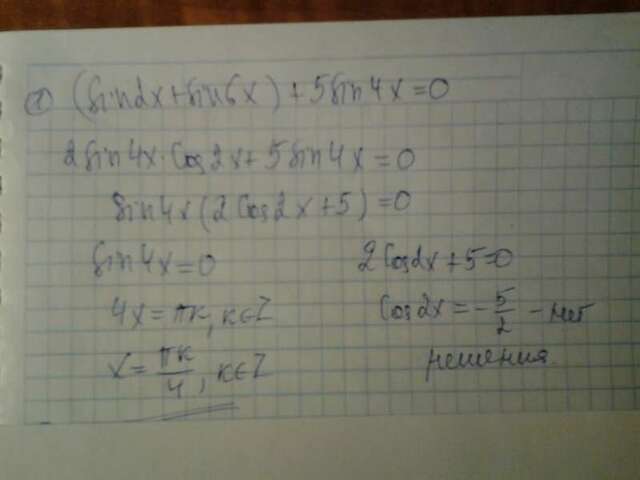 ① (sin2x+sin6x)+5sin4x=0
2sin4x·cos2x+5sin4x=0
sin4x(2cos2x+5)=0
sin4x=0
4x=πк, к∈Z
x=πк/4, к∈Z
2cos2x+5=0
cos2x=-5/2 - нет
решения